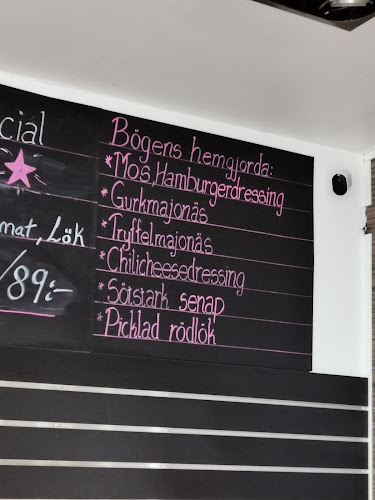 cial
mat, Lök
/89:-
Bögens hemgjorda:
*Mos, Hamburgerdressing
*Gurkmajonäs
*Tryffelmajonäs
*Chilicheesedressing
*Sötstark senap
*Picklad rödlök